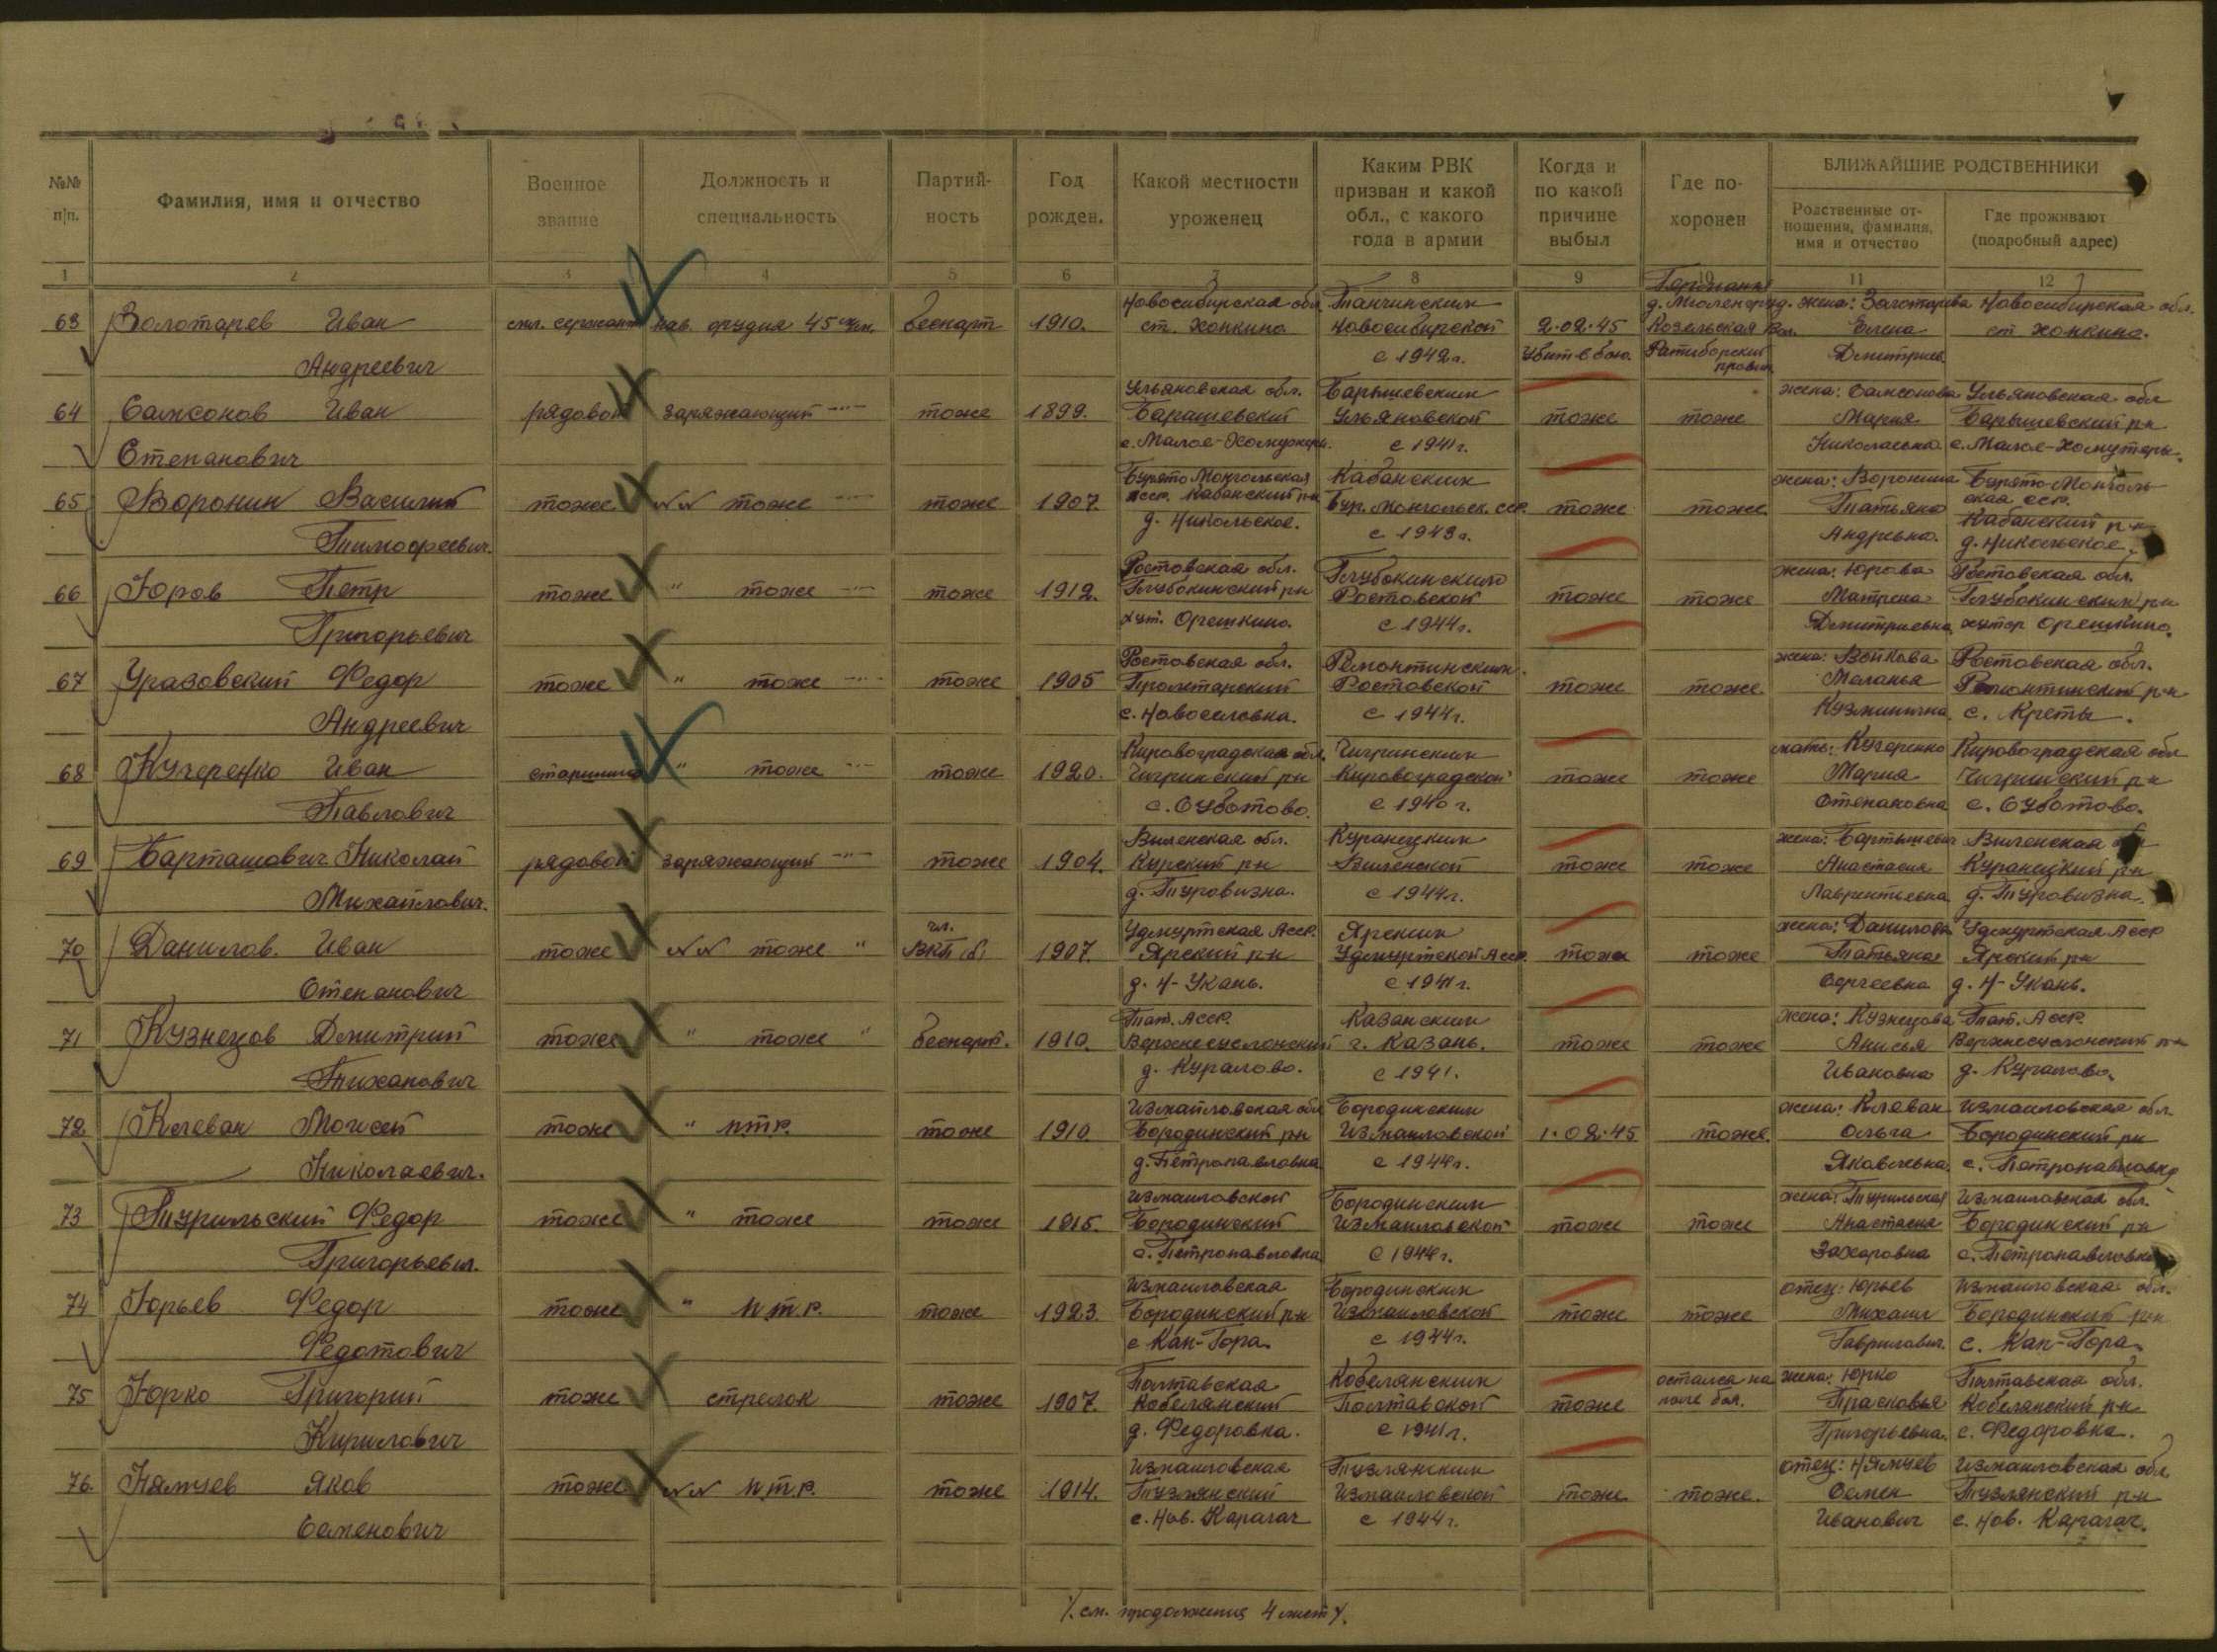 №№ п/п. | Фамилия, имя и отчество | Военное звание | Должность и специальность | Партий- ность | Год рожден. | Какой местности уроженец | Каким РВК призван и какой обл., с какого года в армии | Когда и по какой причине выбыл | Где по- хоронен | БЛИЖАЙШИЕ РОДСТВЕННИКИ
Родственные от- ношения, фамилия, имя и отчество | Где проживают (подробный адрес)
1 2 3 4 5 6 7 8 9 10 11 12
Новосибирская обл. Германия
63 Золотарев Иван ст. сержант нав. орудия 45 беспарт 1910. ст. Хопкино Новосибирской 2.02.45 Козельская жена: Золотарева Новосибирская обл.
Андреевич с 1942г. Убит в бою. Ратиборский Елена ст Хопкино.
Ульяновская обл. Барышевским жена: Самсонова Ульяновская обл
64 Самсонов Иван рядовой заряжающий тоже 1899. Барашевский Ульяновской тоже тоже Мария Барышевский рн
Степанович с. Малое-Хомутеры. с 1941г. Николаевна с. Малое-Хомутеры.
Бурято Монгольская Кабанским жена: Воронина Бурято-Монголь-
65 Воронин Василий тоже тоже тоже 1907. Асср. Кабанский р-н Бур. Монгольск. сср. тоже тоже Татьяна ская сср.
Тимофеевич. д. Никольское. с 1943г. Андревна. Кабанский р-н
д. Никольское.
Ростовская обл. Глубокинским жена: Юрова Ростовская обл.
66 Юров Петр тоже " тоже тоже 1912. Глубокинский рн Ростовской тоже тоже Матрена Глубокинский рн
Григорьевич хут. Орешкино. с 1944г. Дмитриевна хутор Орешкино.
Ростовская обл. Ремонтинским жена: Войкова Ростовская обл.
67 Уразовский Федор тоже " тоже тоже 1905 Пролетарский Ростовской тоже тоже. Маланья Ремонтинский р-н
Андреевич с. Новоселовка. с 1944г. Кузминична с. Кресты.
Кировоградская обл. Чигринским мать: Кучеренко Кировоградская обл
68 Кучеренко Иван старшина " тоже тоже 1920. Чигринский рн Кировоградской тоже тоже Мария Чигринский рн
Павлович с. Суботово. с 1940г. Степановна с. Суботово.
Виленская обл. Куранецким жена: Бартышевич Виленская
69 Барташович Николай рядовой заряжающий тоже 1904. Курский рн Виленской тоже тоже Анастасия Куранецкий рн
Михайлович. д. Туровизна. с 1944г. Лаврентьевна д. Туровизна.
чл. Удмуртская Асср. Ярским жена: Данилова Удмуртская Асср
70 Данилов. Иван тоже тоже " ВКП(б) 1907. Ярский рн Удмуртской Асср. тоже тоже Татьяна Ярский рн
Степанович д. Н-Укань. с 1941г. Сергеевна д. Н-Укань.
Тат. Асср. Казанским жена: Кузнецова Тат. Асср.
71 Кузнецов Дмитрий тоже " тоже " беспарт. 1910. Верхнеуслонский г. Казань. тоже тоже Анисья Верхнеуслонский р-н
Тиханович д. Куралово. с 1941. Ивановна д. Куралово.
Измаиловская обл Бородинским жена: Клеван Измаиловская обл.
72. Клеван Моисей тоже " П.Т.Р. тоже 1910 Бородинский рн Измаиловской 1.02.45 тоже. Ольга Бородинский рн
Николаевич. д. Петропавловка с 1944г. Яковлевна. с. Петропавловка
Измаиловской Бородинским жена: Турильская Измаиловская обл.
73 Турильский Федор тоже " тоже тоже 1915. Бородинский Измаиловской тоже тоже Анастасия Бородинский рн
Григорьевич. с. Петропавловка с 1944г. Захаровна с. Петропавловка
Измаиловская Бородинским отец: Юрьев Измаиловская обл.
74 Юрьев Федор тоже " П.Т.Р. тоже 1923. Бородинский р-н Измаиловской тоже тоже Михаил Бородинский р-н
Федотович с Кап-Гора. с 1944г. Гаврилович. с. Кап-Гора.
Полтавская Кобелянским остался на жена: Юрко Полтавская обл.
75 Юрко Григорий тоже стрелок тоже 1907. Кобелянский Полтавской тоже поле боя. Прасковья Кобелянский рн
Кирилович д. Федоровка. с 1941г. Григорьевна. с. Федоровка.
Измаиловская Тузлянским отец: Нямчев Измаиловская обл
76. Нямчев Яков тоже П.Т.Р. тоже 1914. Тузлянский Измаиловской тоже тоже. Семен Тузлянский р-н
Семенович с. Нов. Карагач с 1944г. Иванович с. Нов. Карагач.
/. см. продолжение 4 лист /.